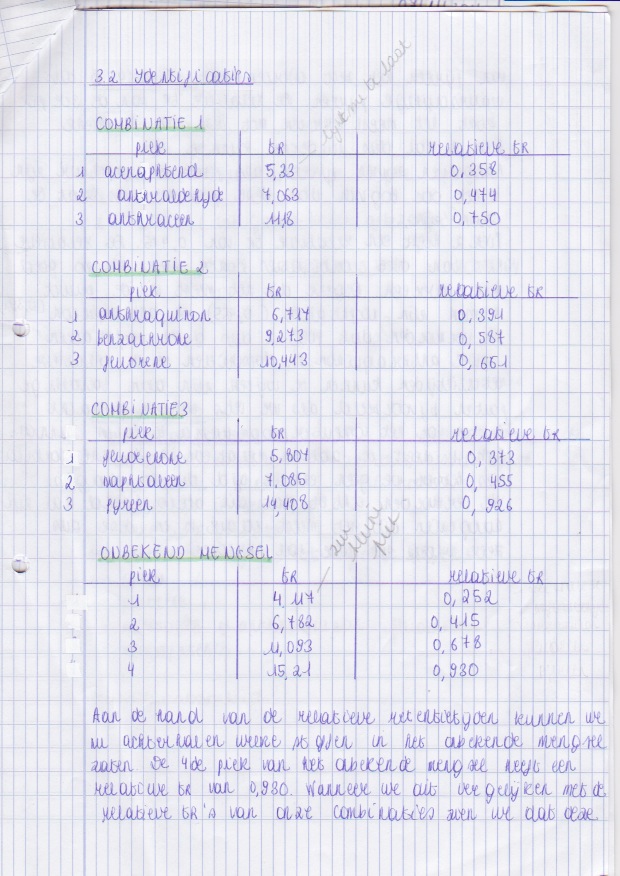 3.2 Identificaties
COMBINATIE 1
piek tR relatieve tR
1 acenaphteno 5,33 0,358
2 anthraldehyde 7,063 0,474
3 anthraceen 11,18 0,750
COMBINATIE 2
piek tR relatieve tR
1 anthraquinon 6,717 0,391
2 benzathrone 9,273 0,587
3 fluorene 10,443 0,661
COMBINATIE 3
piek tR relatieve tR
1 fluorenone 5,807 0,373
2 naphtaleen 7,085 0,455
3 pyreen 14,408 0,926
zeer kleine piek
ONBEKEND MENGSEL
piek tR relatieve tR
1 4,117 0,252
2 6,782 0,415
3 11,093 0,678
4 15,21 0,930
Aan de hand van de relatieve retentietijden kunnen we
nu achterhalen welke stoffen in het onbekende mengsel
zaten De 4de piek van het onbekende mengsel heeft een
relatieve tR van 0,930. Wanneer we dit vergelijken met de
relatieve tR's van onze combinaties zien we dat deze